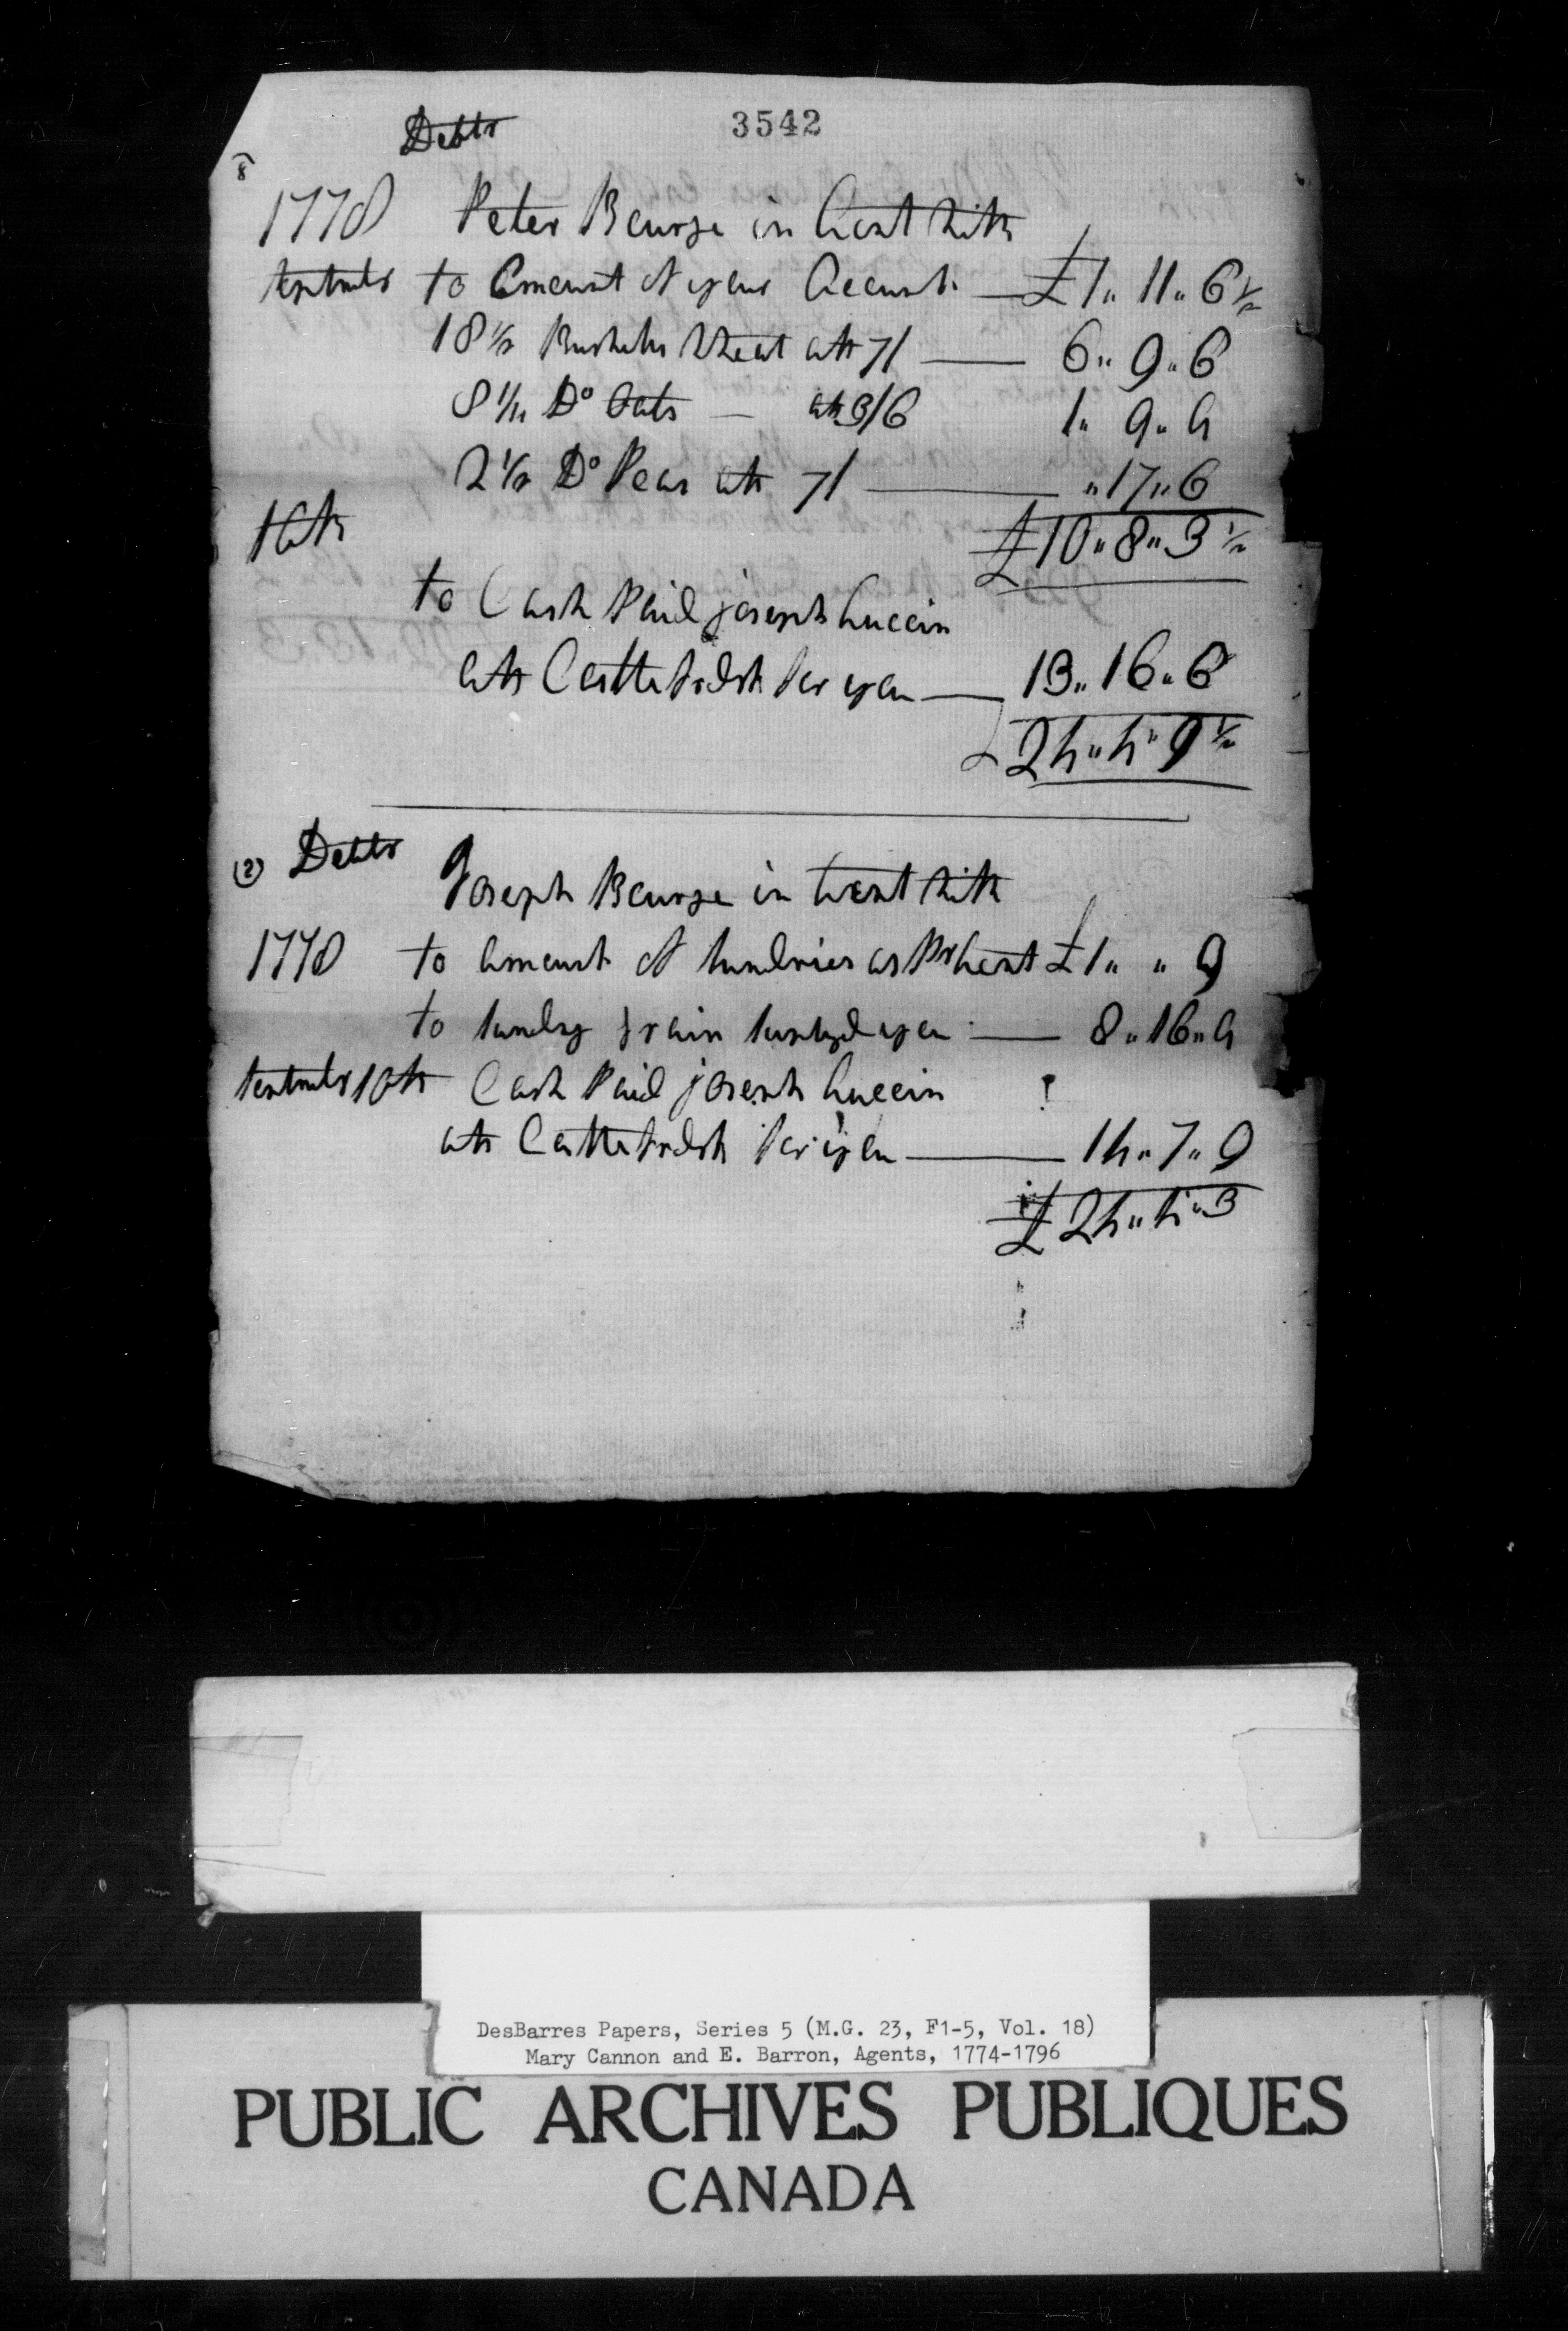 3542
Debtr
8
1778 Peter Bourge in Acont with
to Amount of your Acount — £1 " 11 " 6 ½
18 ½ Bushels Wheat att 7/ — 6 " 9 " 6
8 ½ Do Oats — att 3/6 1 " 9 " 9
2 ½ Do Peas att 7/ — " 17 " 6
10th £10 " 8 " 3 ½
to Cash Paid joseph
att Per you — 13 " 16 " 6
£ 24 " 4 " 9 ½
(2) Debtr
Joseph Bourge in Acont with
1778 to Amount of Sundries as Pr Acont £1 " " 9
to Sundry grain you — 8 " 16 " 9
10th Cash Paid joseph
att Per you — 14 " 7 " 9
£ 24 " 4 " 3
DesBarres Papers, Series 5 (M.G. 23, F1-5, Vol. 18)
Mary Cannon and E. Barron, Agents, 1774-1796
PUBLIC ARCHIVES PUBLIQUES
CANADA